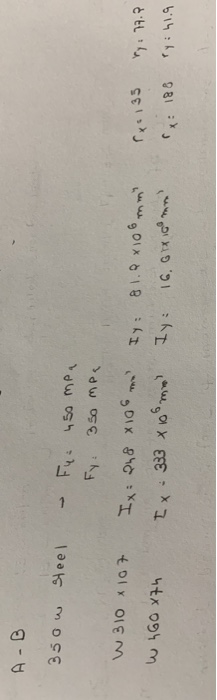 A - B
350 W steel → Fu: 450 MPa
Fy: 350 MPa
W310 x 107 Ix = 248 x 10⁶ mm⁴ Iy: 81.2 x 10⁶ mm⁴ rx = 135 ry: 77.2
W 460 x 74 Ix = 333 x 10⁶ mm⁴ Iy: 16.6 x 10⁶ mm⁴ rx: 188 ry: 41.9